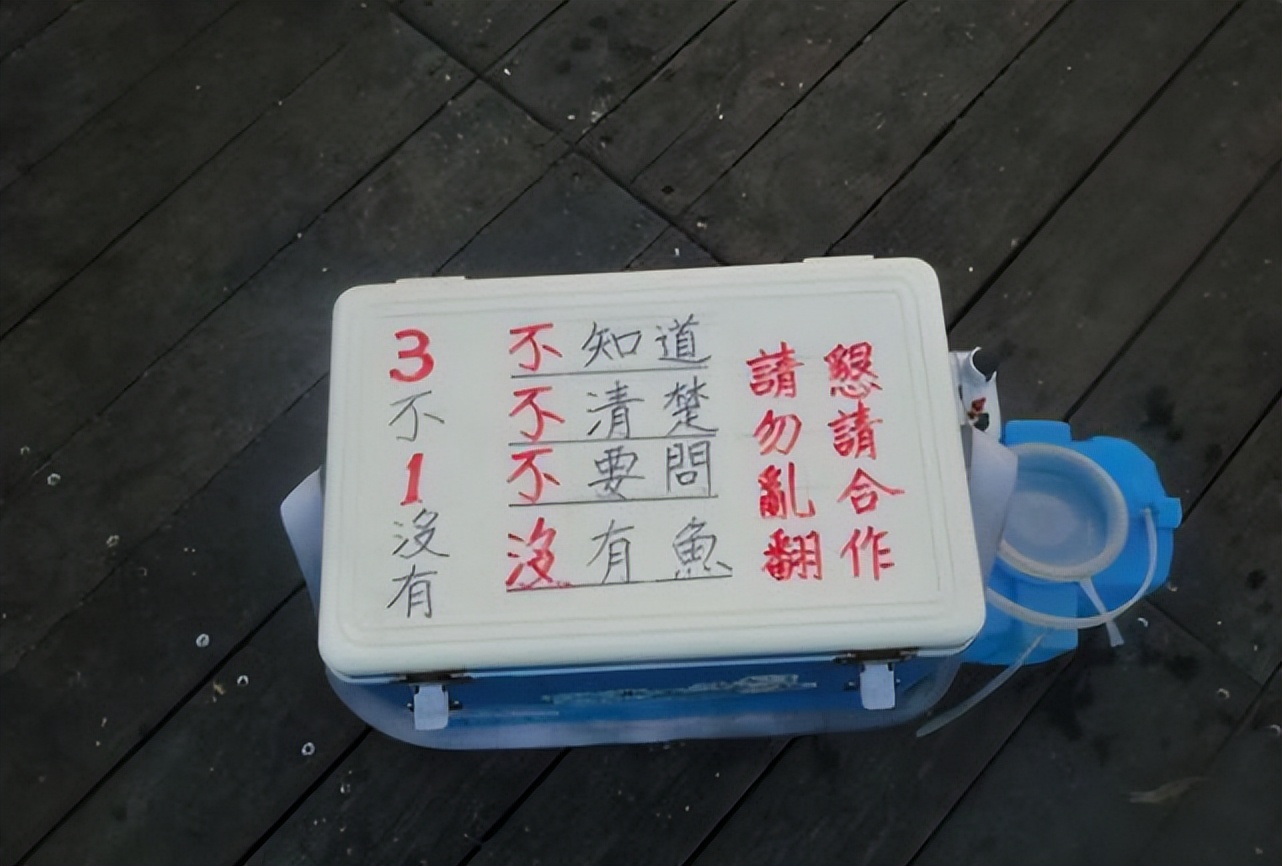 3不1沒有
不知道
不清楚
不要問
沒有魚
請勿亂翻
懇請合作